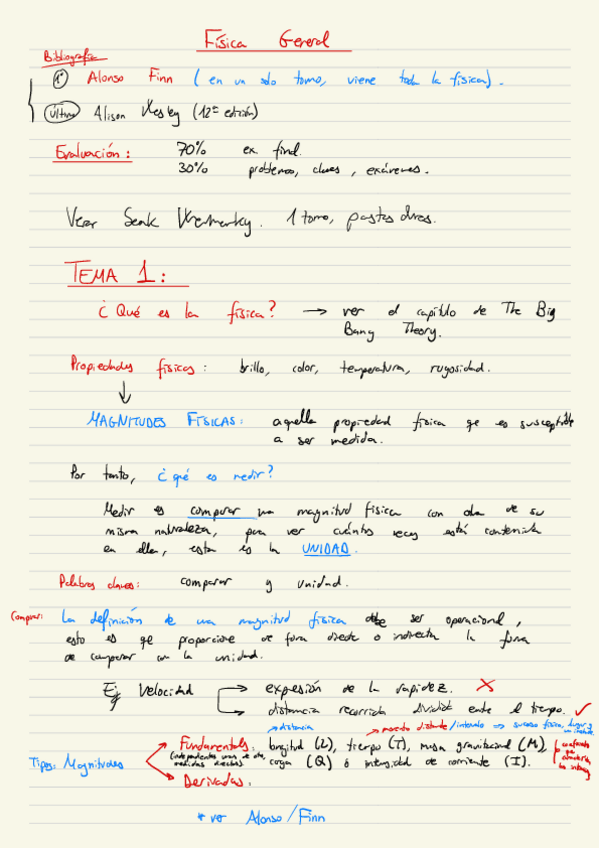 Física General
Bibliografía
1º Alonso Finn (en un solo tomo, viene toda la física).
Última Alison (12ª edición)
Evaluación: 70% ex. final.
30% problemas, clases, exámenes.
1 tomo, pastas duras.
TEMA 1:
¿Qué es la física? → ver el capítulo de The Big
Bang Theory.
Propiedades físicas: brillo, color, temperatura, rugosidad.
MAGNITUDES FÍSICAS: aquella propiedad física qe es susceptible
a ser medida.
Por tanto, ¿qué es medir?
Medir es comparar una magnitud física con otra de su
misma naturaleza, para ver cuántas veces está contenida
en ella, esta es la UNIDAD.
Palabras claves: comparar y unidad.
Comparar: La definición de una magnitud física debe ser operacional,
esto es qe proporcione de forma directa o indirecta la forma
de comparar con la unidad.
Ej Velocidad → expresión de la rapidez. ✗
→ distancia recorrida dividida entre el tiempo. ✓
→ distancia → /intervalo ⇒ suceso físico, lugar y
Tipos: Magnitudes
Fundamentales: longitud (L), tiempo (T), masa gravitacional (M),
(independientes unas de otras, medidas directas) carga (Q) ó intensidad de corriente (I).
Derivadas.
* ver Alonso/Finn